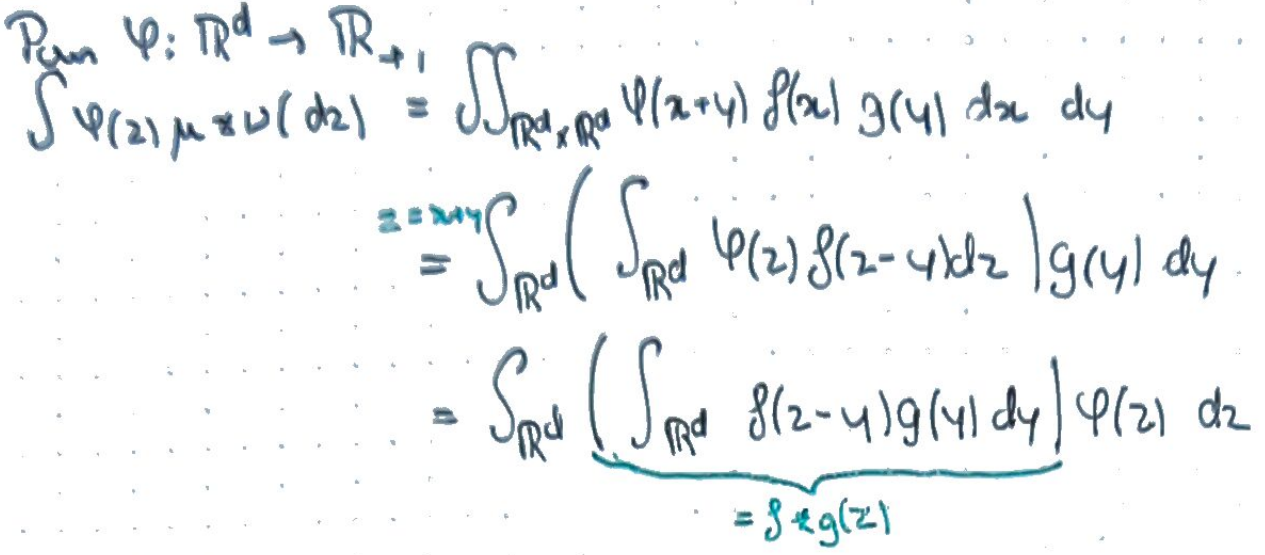 Pour φ: ℝᵈ → ℝ₊,
∫ φ(z) μ * ν(dz) = ∬_{ℝᵈ×ℝᵈ} φ(x+y) f(x) g(y) dx dy
z = x+y
= ∫_{ℝᵈ} ( ∫_{ℝᵈ} φ(z) f(z-y)dz ) g(y) dy
= ∫_{ℝᵈ} ( ∫_{ℝᵈ} f(z-y)g(y) dy ) φ(z) dz
= f * g(z)